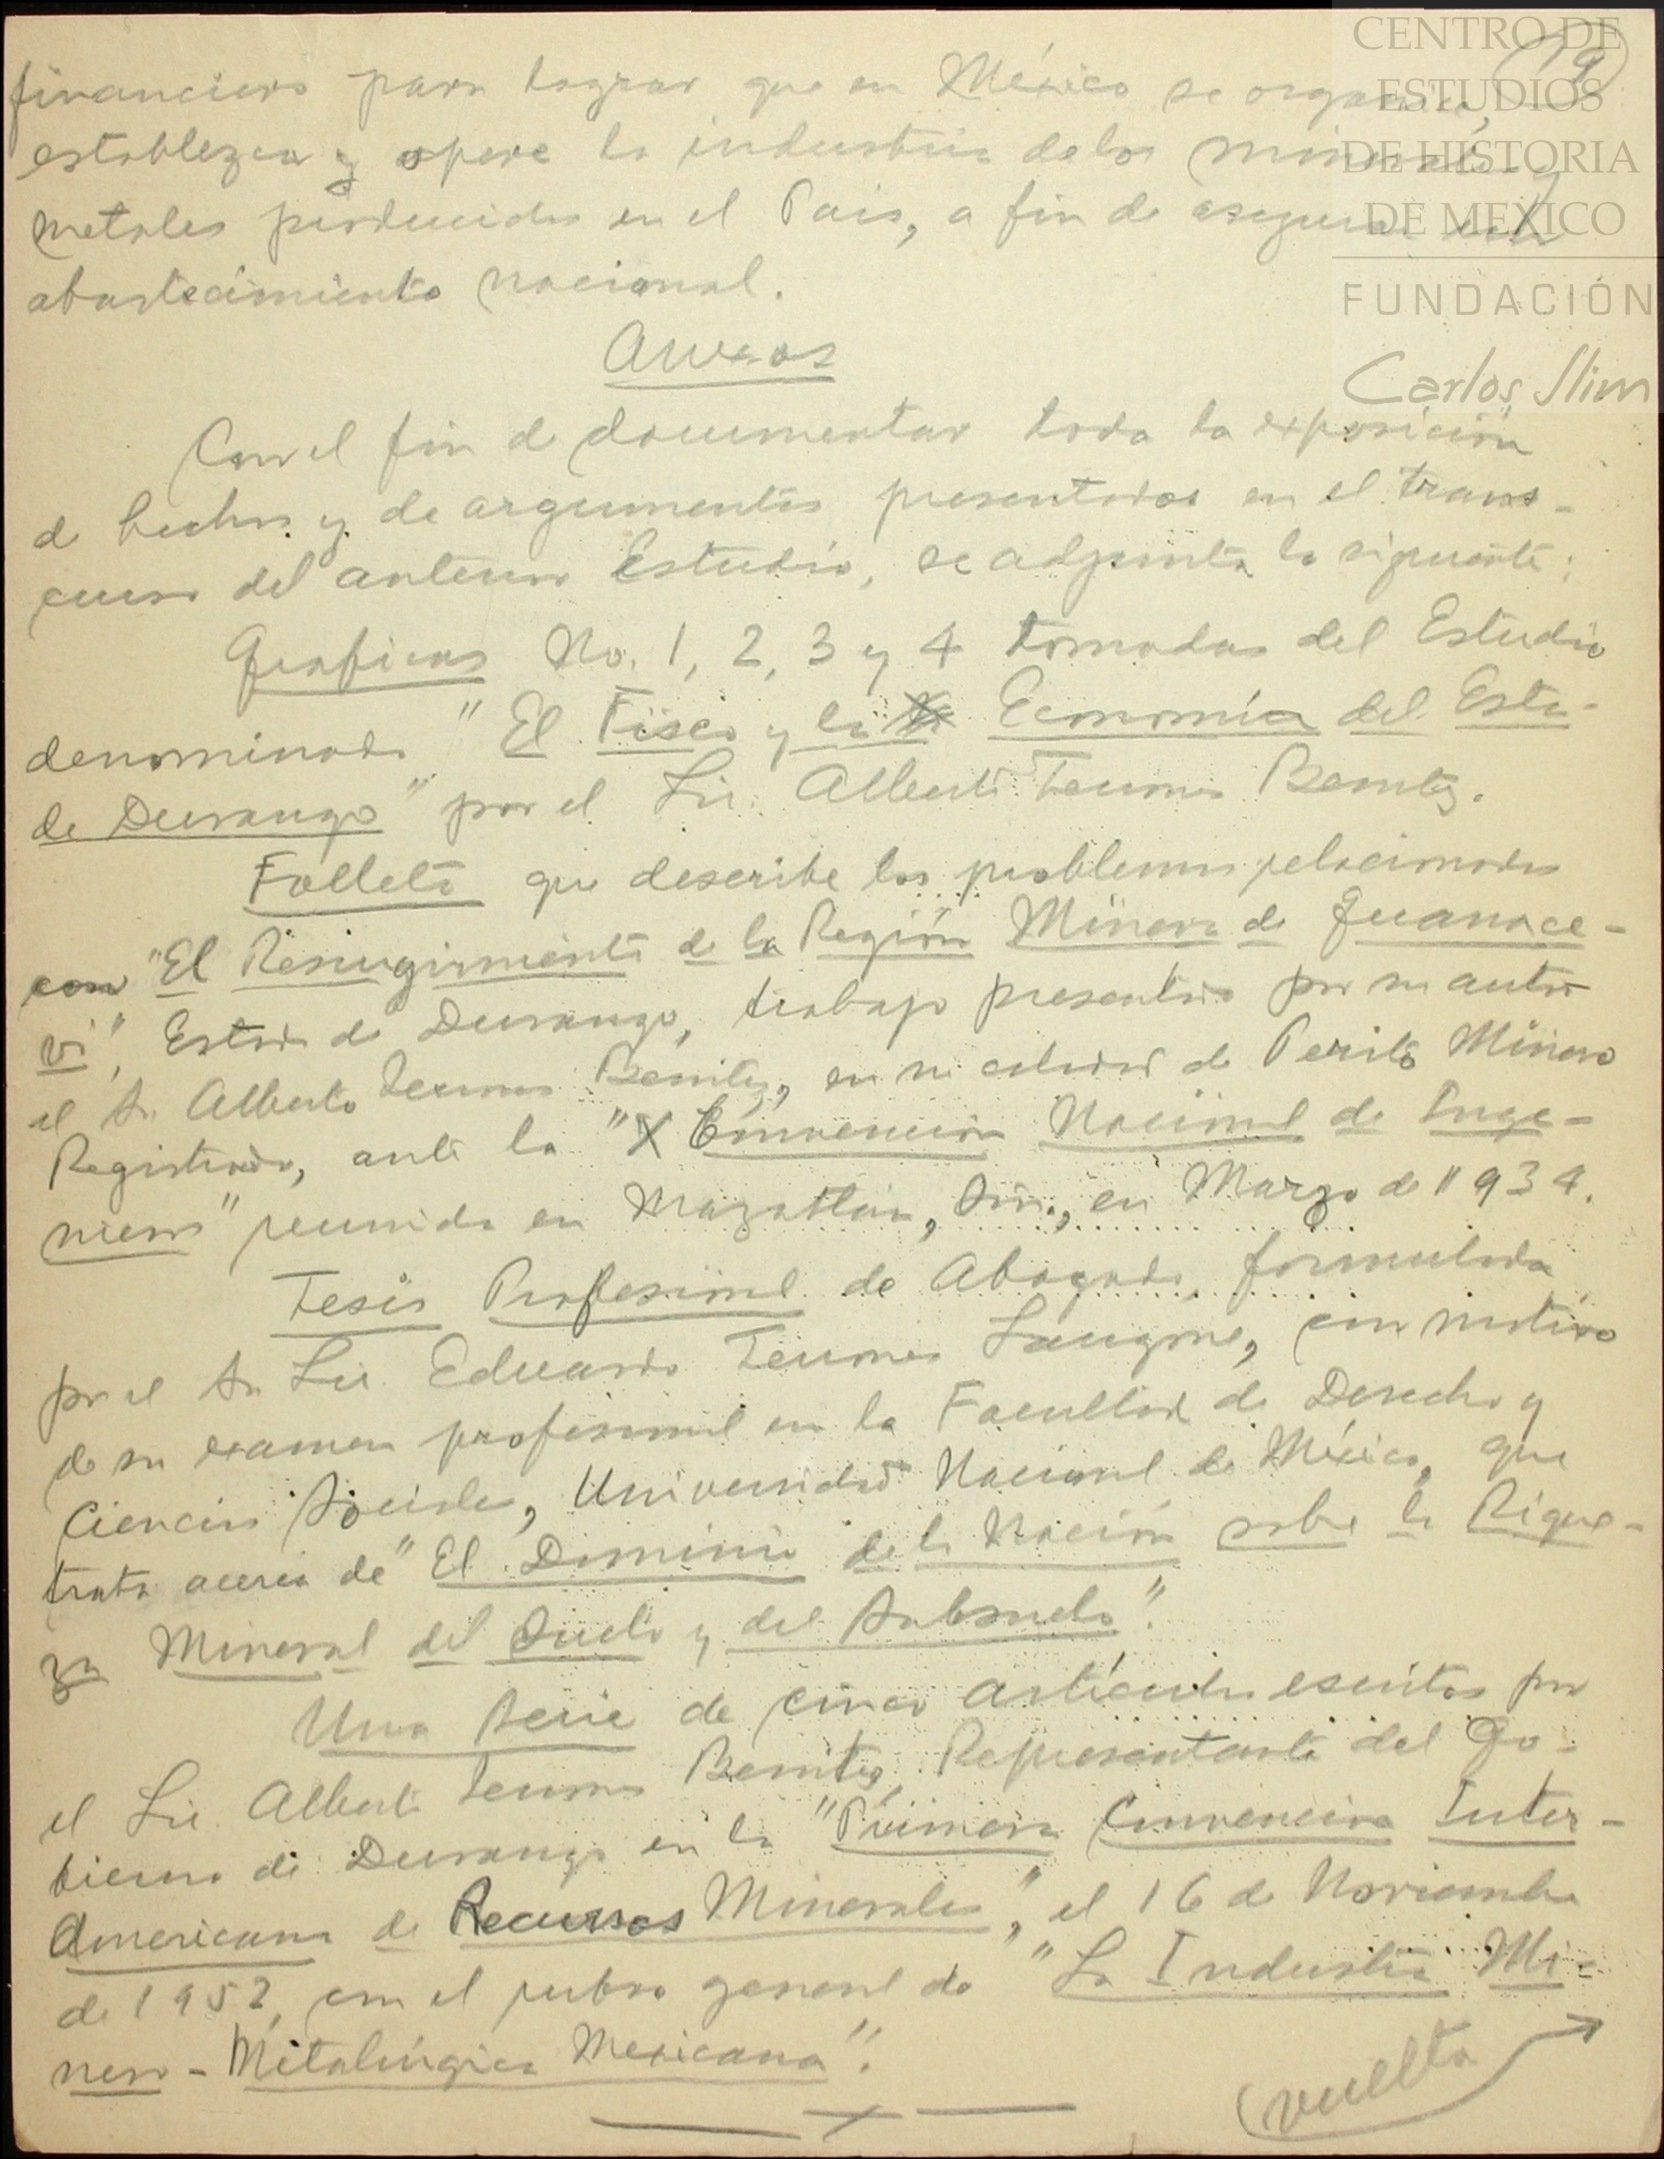 CENTRO DE
ESTUDIOS
DE HISTORIA
DE MEXICO
FUNDACIÓN
Carlos Slim
19
financiero para lograr que en México se organice,
establezca y opere la industria de los minerales y
metales producidos en el País, a fin de asegurar
abastecimiento nacional.
Anexos
Con el fin de documentar toda la exposición
de hechos y de argumentos presentados en el trans-
curso del anterior Estudio, se adjunta lo siguiente:
Graficas No. 1, 2, 3 y 4 tomadas del Estudio
denominado "El Fisco y la Economía del Esta-
de Durango" por el Lic. Alberto Terrones Benitez.
Folleto que describe los problemas relacionados
con "El Resurgimiento de la Región Minera de Guanace-
vi", Estado de Durango, trabajo presentado por su autor
el Sr. Alberto Terrones Benitez, en su calidad de Perito Minero
Registrado, ante la "X Convencion Nacional de Inge-
nieros" reunida en Mazatlán, Sin., en Marzo de 1934.
Tesis Profesional de Abogado, formulada
por el Sr. Lic. Eduardo Terrones Langone, con motivo
de su examen profesional en la Facultad de Derecho y
Ciencias Sociales, Universidad Nacional de México, que
trata acerca de "El Dominio de la Nación sobre la Rique-
za Mineral del Suelo y del Subsuelo".
Una Serie de cinco artículos escritos por
el Lic. Alberto Terrones Benitez, Representante del Go-
bierno de Durango en la "Primera Convencion Inter-
Americana de Recursos Minerales", el 16 de Noviembre
de 1952, con el rubro general de "La Industria Mi-
nero-Metalúrgica Mexicana".
(vuelta